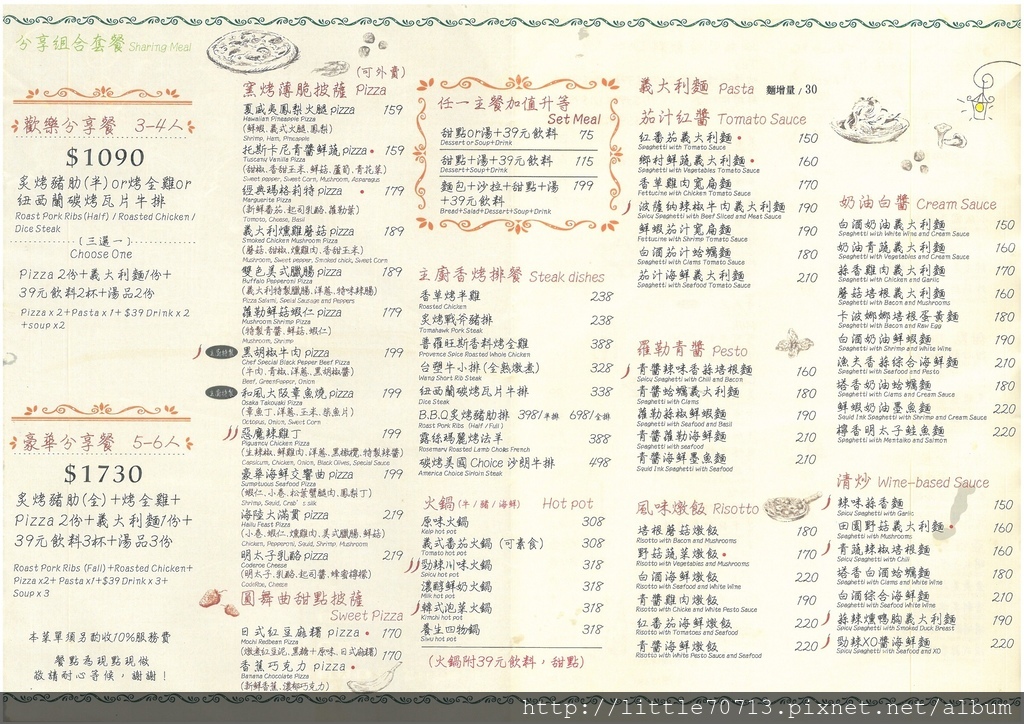 分享組合套餐 Sharing Meal
歡樂分享餐 3-4人
$1090
炙烤豬肋(半)or烤全雞or
紐西蘭碳烤瓦片牛排
Roast Pork Ribs (Half) / Roasted Chicken /
Dice Steak
(三選一)
Choose One
Pizza 2份+義大利麵1份+
39元飲料2杯+湯品2份
Pizza x 2+Pasta x 1+ $39 Drink x 2
+soup x2
豪華分享餐 5-6人
$1730
炙烤豬肋(全)+烤全雞+
Pizza 2份+義大利麵1份+
39元飲料3杯+湯品3份
Roast Pork Ribs (Fall) +Roasted Chicken+
Pizza x2+ Pasta x1+$39 Drink x 3+
Soup x 3
本菜單須另酌收10%服務費
餐點為現點現做
敬請耐心等候，謝謝！
(可外賣)
窯烤薄脆披薩 Pizza
夏威夷鳳梨火腿pizza 159
Hawaiian Pineapple Pizza
(鮮蝦,義式火腿,鳳梨)
Shrimp, Ham, Pineapple
托斯卡尼青醬鮮蔬pizza• 159
Tuscany Vanilla Pizza
(甜椒,香甜玉米,鮮菇,蘆筍,青花菜)
Sweet pepper, Sweet Corn, Mushroom, Asparagus
經典瑪格莉特pizza • 179
Marguerite Pizza
(新鮮番茄,起司乳酪,蘿勒葉)
Tomato, Cheese, Basil
義大利燻雞蘑菇pizza 189
Smoked Chicken Mushroom Pizza
(蘑菇,甜椒,燻雞肉,香甜玉米)
Mushroom, Sweet pepper, Smoked chick, Sweet Corn
雙色美式臘腸pizza 189
Buffalo Pepperoni Pizza
(義大利特製臘腸,洋蔥,特味辣腸)
Pizza Salami, Special Sausage and Peppers
蘿勒鮮菇蝦仁pizza 179
Mushroom Shrimp Pizza
(特製青醬,鮮菇,蝦仁)
Mushroom, Shrimp
黑胡椒牛肉pizza 199
Chef Special Black Pepper Beef Pizza
(牛肉,青椒,洋蔥,黑胡椒醬)
Beef, GreenPepper, Onion
和風大阪章魚燒pizza 199
Osaka Takoyaki Pizza
(章魚丁,洋蔥,玉米,柴魚片)
Octopus, Onion, Sweet Corn
惡魔辣雞丁 199
Piguancy Chicken Pizza
(生辣椒,鮮雞肉,洋蔥,黑橄欖,特製辣醬)
Capsicum, Chicken, Onion, Black Olives, Special Sauce
豪華海鮮交響曲pizza 199
Sumptuous Seafood Pizza
(蝦仁,小卷,松葉蟹腿肉,鳳梨丁)
海陸大滿貫pizza 219
Hailu Feast Pizza
(小卷,蝦仁,燻雞肉,美式臘腸,鮮菇)
Chicken, Pepperoni, Squid, Shrimp, Mushroom
明太子乳酪pizza 219
Coderoe Cheese
(明太子,乳酪,起司醬,蜂蜜檸檬)
CodRoe, Cheese
圓舞曲甜點披薩
Sweet Pizza
日式紅豆麻糬 pizza • 170
Mochi Redbean Pizza
(燉煮紅豆泥,黑糖+原味,日式麻糬)
香蕉巧克力 pizza • 170
Banana Chocolate Pizza
(新鮮香蕉,濃郁巧克力)
任一主餐加值升等
Set Meal
甜點or湯+39元飲料 75
Dessert or Soup+Drink
甜點+湯+39元飲料 115
Dessert+Soup+Drink
麵包+沙拉+甜點+湯 199
+39元飲料
Bread+Salad+Dessert+Soup+Drink
主廚香烤排餐 Steak dishes
香草烤半雞 238
Roasted Chicken
炙烤戰斧豬排 238
Tomahawk Pork Steak
普羅旺斯香料烤全雞 338
Provence Spice Roasted Whole Chicken
台塑牛小排(全熟燉煮) 328
Wang Short Rib Steak
紐西蘭碳烤瓦片牛排 338
Dice Steak
B.B.Q炙烤豬肋排 398/半排 698/全排
Roast Pork Ribs (Half / Full)
露絲瑪麗烤法羊 388
Rosemary Roasted Lamb Chops French
碳烤美國 Choice 沙朗牛排 498
America Choice Sirloin Steak
火鍋(牛/豬/海鮮) Hot pot
原味火鍋 308
Kelp hot pot
義式番茄火鍋 (可素食) 308
Tomato hot pot
勁辣川味火鍋 318
Spicy hot pot
濃醇鮮奶火鍋 318
Milk hot pot
韓式泡菜火鍋 318
Kimchi hot pot
養生四物鍋 318
Siwu hot pot
(火鍋附39元飲料，甜點)
義大利麵 Pasta 麵增量 / 30
茄汁紅醬 Tomato Sauce
紅番茄義大利麵• 150
Spaghetti with Tomato Sauce
鄉村鮮蔬義大利麵 • 160
Spaghetti with Vegetables Tomato Sauce
香草雞肉寬扁麵 170
Fettucine with Chicken Tomato Sauce
波薩納辣椒牛肉義大利麵 190
Spicy Spaghetti with Beef Sliced and Meat Sauce
鮮蝦茄汁寬扁麵 190
Fettucine with Shrimp Tomato Sauce
白酒茄汁蛤蠣麵 180
Spaghetti with Clams Tomato Sauce
茄汁海鮮義大利麵 210
Spaghetti with Seafood Tomato Sauce
羅勒青醬 Pesto
青醬辣味香蒜培根麵 160
Spicy Spaghetti with Chili and Bacon
青醬蛤蠣義大利麵 180
Spaghetti with Clams
蘿勒蒜椒鮮蝦麵 190
Spaghetti with Seafood and Basil
青醬蘿勒海鮮麵 210
Spaghetti with Seafood
青醬海鮮墨魚麵 210
Squid Ink Spaghetti with Seafood
風味燉飯 Risotto
培根蘑菇燉飯 180
Risotto with Bacon and Mushrooms
野菇蔬菜燉飯 • 170
Risotto with Vegetable Pork and Mushrooms
白酒海鮮燉飯 220
Risotto with Seafood and White Wine
青醬雞肉燉飯 200
Risotto with Chicke and White Pesto Sauce
紅番茄海鮮燉飯 220
Risotto with Tomatoes and Seafood
青醬海鮮燉飯 220
Risotto with White Pesto Sauce and Seafood
奶油白醬 Cream Sauce
白酒奶油義大利麵 150
Spaghetti with White Wine and Cream Sauce
奶油青蔬義大利麵 160
Spaghetti with Vegetables and Cream Sauce
蒜香雞肉義大利麵 170
Spaghetti with Chicken and Garlic
蘑菇培根義大利麵 160
Spaghetti with Bacon and Mushrooms
卡波娜娜培根蛋黃麵 180
Spaghetti with Bacon and Raw Egg
白酒奶油鮮蝦麵 190
Spaghetti with Shrimp and White Wine
漁夫香蒜綜合海鮮麵 210
Spaghetti with Seafood and Pesto
塔香奶油蛤蠣麵 180
Spaghetti with Clams and Cream Sauce
鮮蝦奶油墨魚麵 220
Squid Ink Spaghetti with Shrimp and Cream Sauce
檸香明太子鮭魚麵 220
Spaghetti with Mentaiko and Salmon
清炒 Wine-based Sauce
辣味蒜香麵 150
Spicy Spaghetti with Garlic
田園野菇義大利麵 • 160
Spaghetti with Mushrooms
青蔬辣椒培根麵 160
Spicy Spaghetti with Chili
塔香白酒蛤蠣麵 180
Spaghetti with Clams and White Wine
白酒綜合海鮮麵 210
Spaghetti with Seafood White Wine
蒜辣燻鴨胸義大利麵 190
Spicy Spaghetti with Smoked Duck Breast
勁辣XO醬海鮮麵 220
Spicy Spaghetti with Seafood and XO
http://little70713.pixnet.net/album